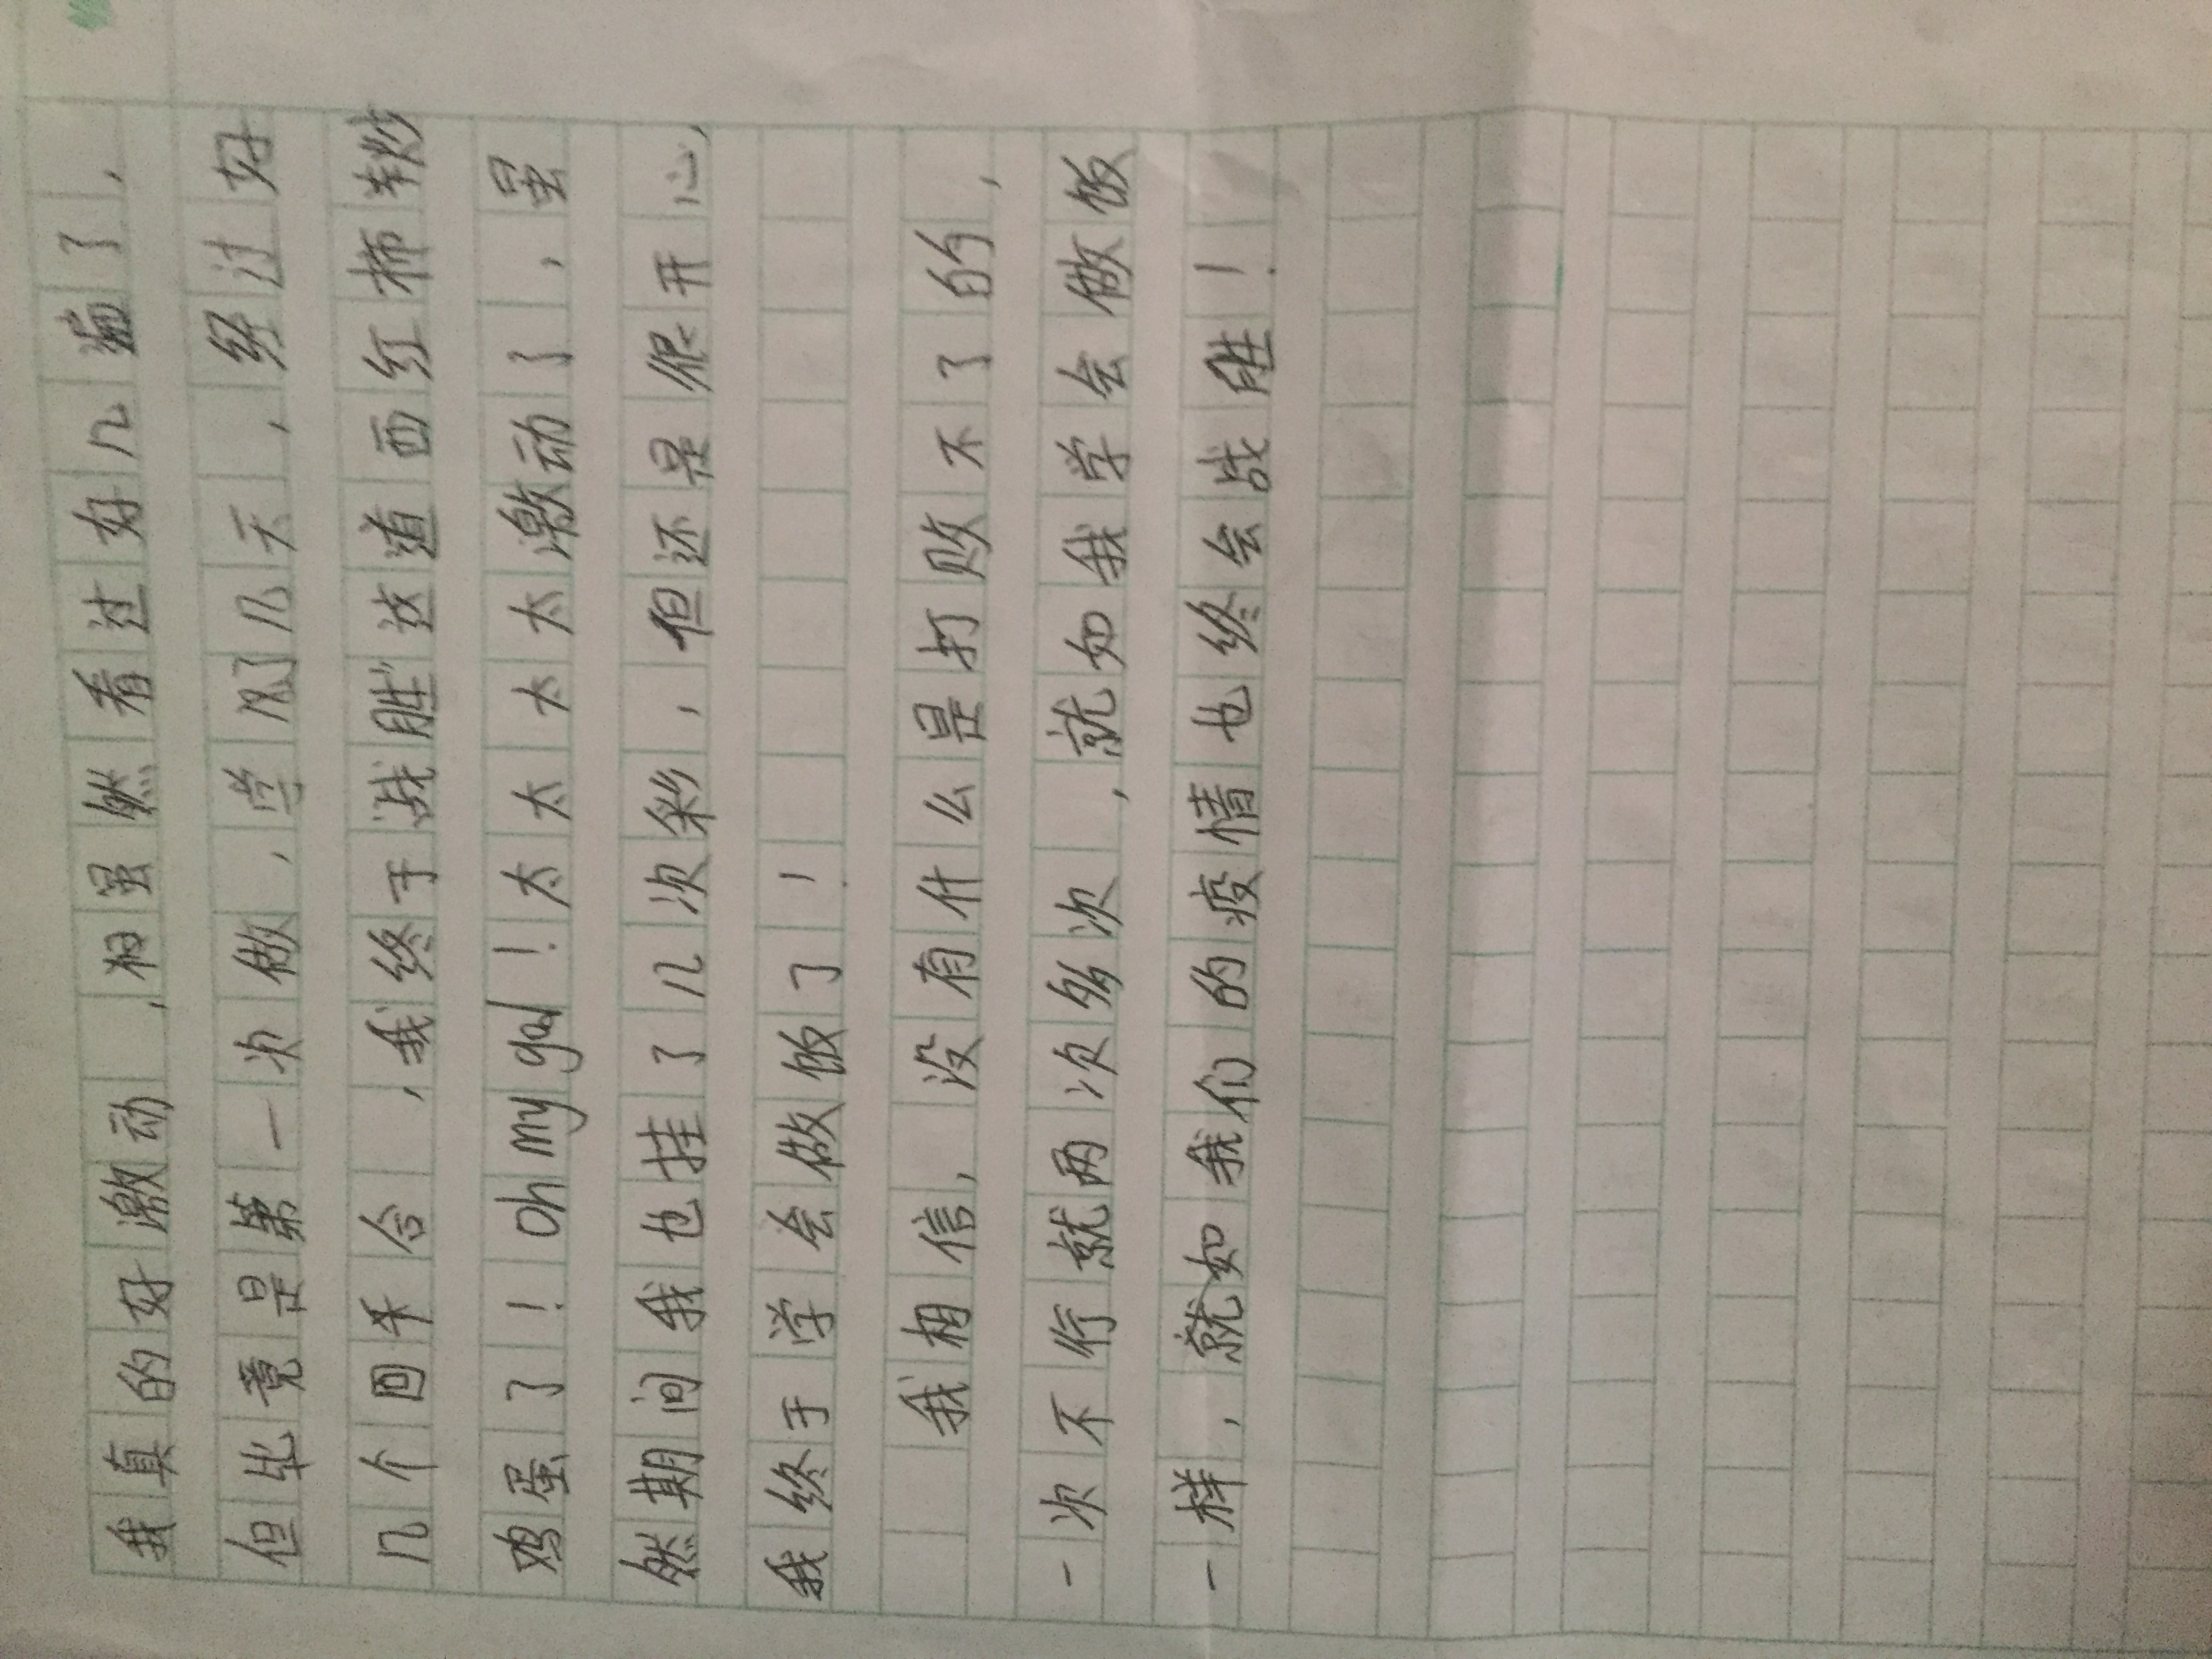 我真的好激动，但虽然看过好几遍了，
但毕竟是第一次做，学了几天，经过好
几个回手合，我终于“战胜”这道西红柿炒
鸡蛋了！Oh my god！太太太太激动了，虽
然期间我也挂了几次彩，但还是很开心，
我终于学会做饭了！
我相信，没有什么是打败不了的，
一次不行就两次多次，就如我学会做饭
一样，就如我们的疫情也终会战胜！